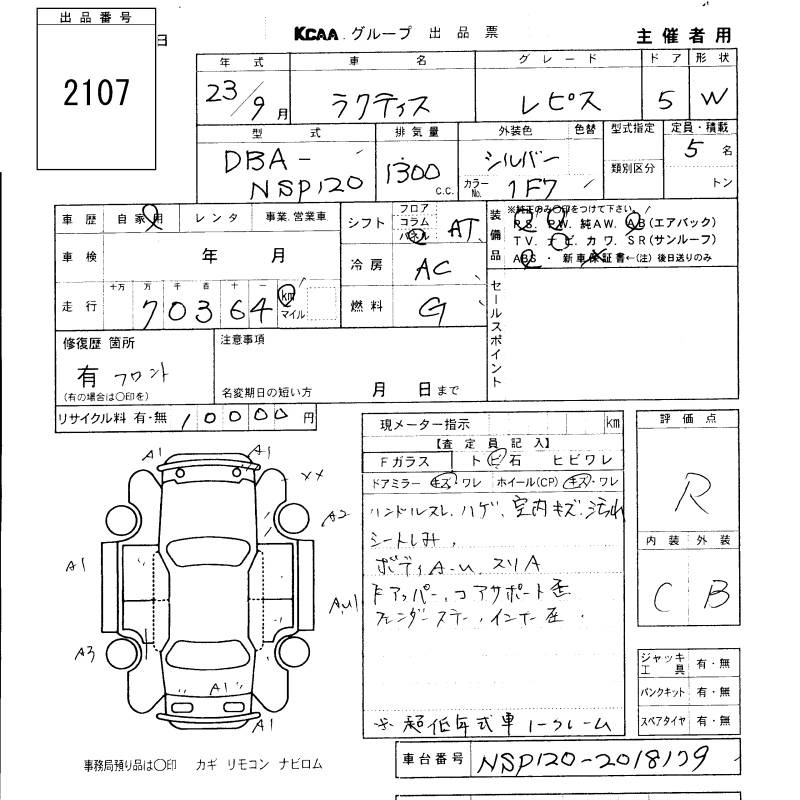 出品番号
2107
日
KCAA グループ 出品票
主催者用
年式 車名 グレード ドア 形状
23/9月 ラクティス レピス 5 W
型式 排気量 外装色 色替 型式指定 定員・積載
DBA-NSP120 1300 c.c. シルバー カラーNo. 1F7 類別区分 5名 トン
車歴 自家用 レンタ 事業.営業車
シフト フロア コラム パネル AT
装備品 ※純正のみ〇印をつけて下さい。
P.S. P.W. 純A.W. A.B(エアバック)
T.V. ナビ. カワ. S.R(サンルーフ)
ABS ・ 新車保証書←(注)後日送りのみ
車検 年 月
冷房 AC
走行 十万 万 千 百 十 一
70364 km マイル
燃料 G
セールスポイント
修復歴 箇所
有 フロント
(有の場合は〇印を)
注意事項
名変期日の短い方 月 日まで
リサイクル料 有・無 10000円
現メーター指示 km
【査定員記入】
Fガラス ト ビ 石 ヒビワレ
ドアミラー キズ・ワレ ホイール(CP) キズ・ワレ
ハンドルスレ、ハゲ、室内キズ、汚れ
シートしみ、
ボディA-U、スリA
Fアッパー、コアサポート歪
フェンダーステー、インナー歪
※超低年式車 1-クレーム
評価点
R
内装 外装
C B
A1
A1
XX
A2
A1
A,U1
A3
A1
A1
ジャッキ工具 有・無
パンクキット 有・無
スペアタイヤ 有・無
車台番号 NSP120-2018179
事務局預り品は〇印 カギ リモコン ナビロム